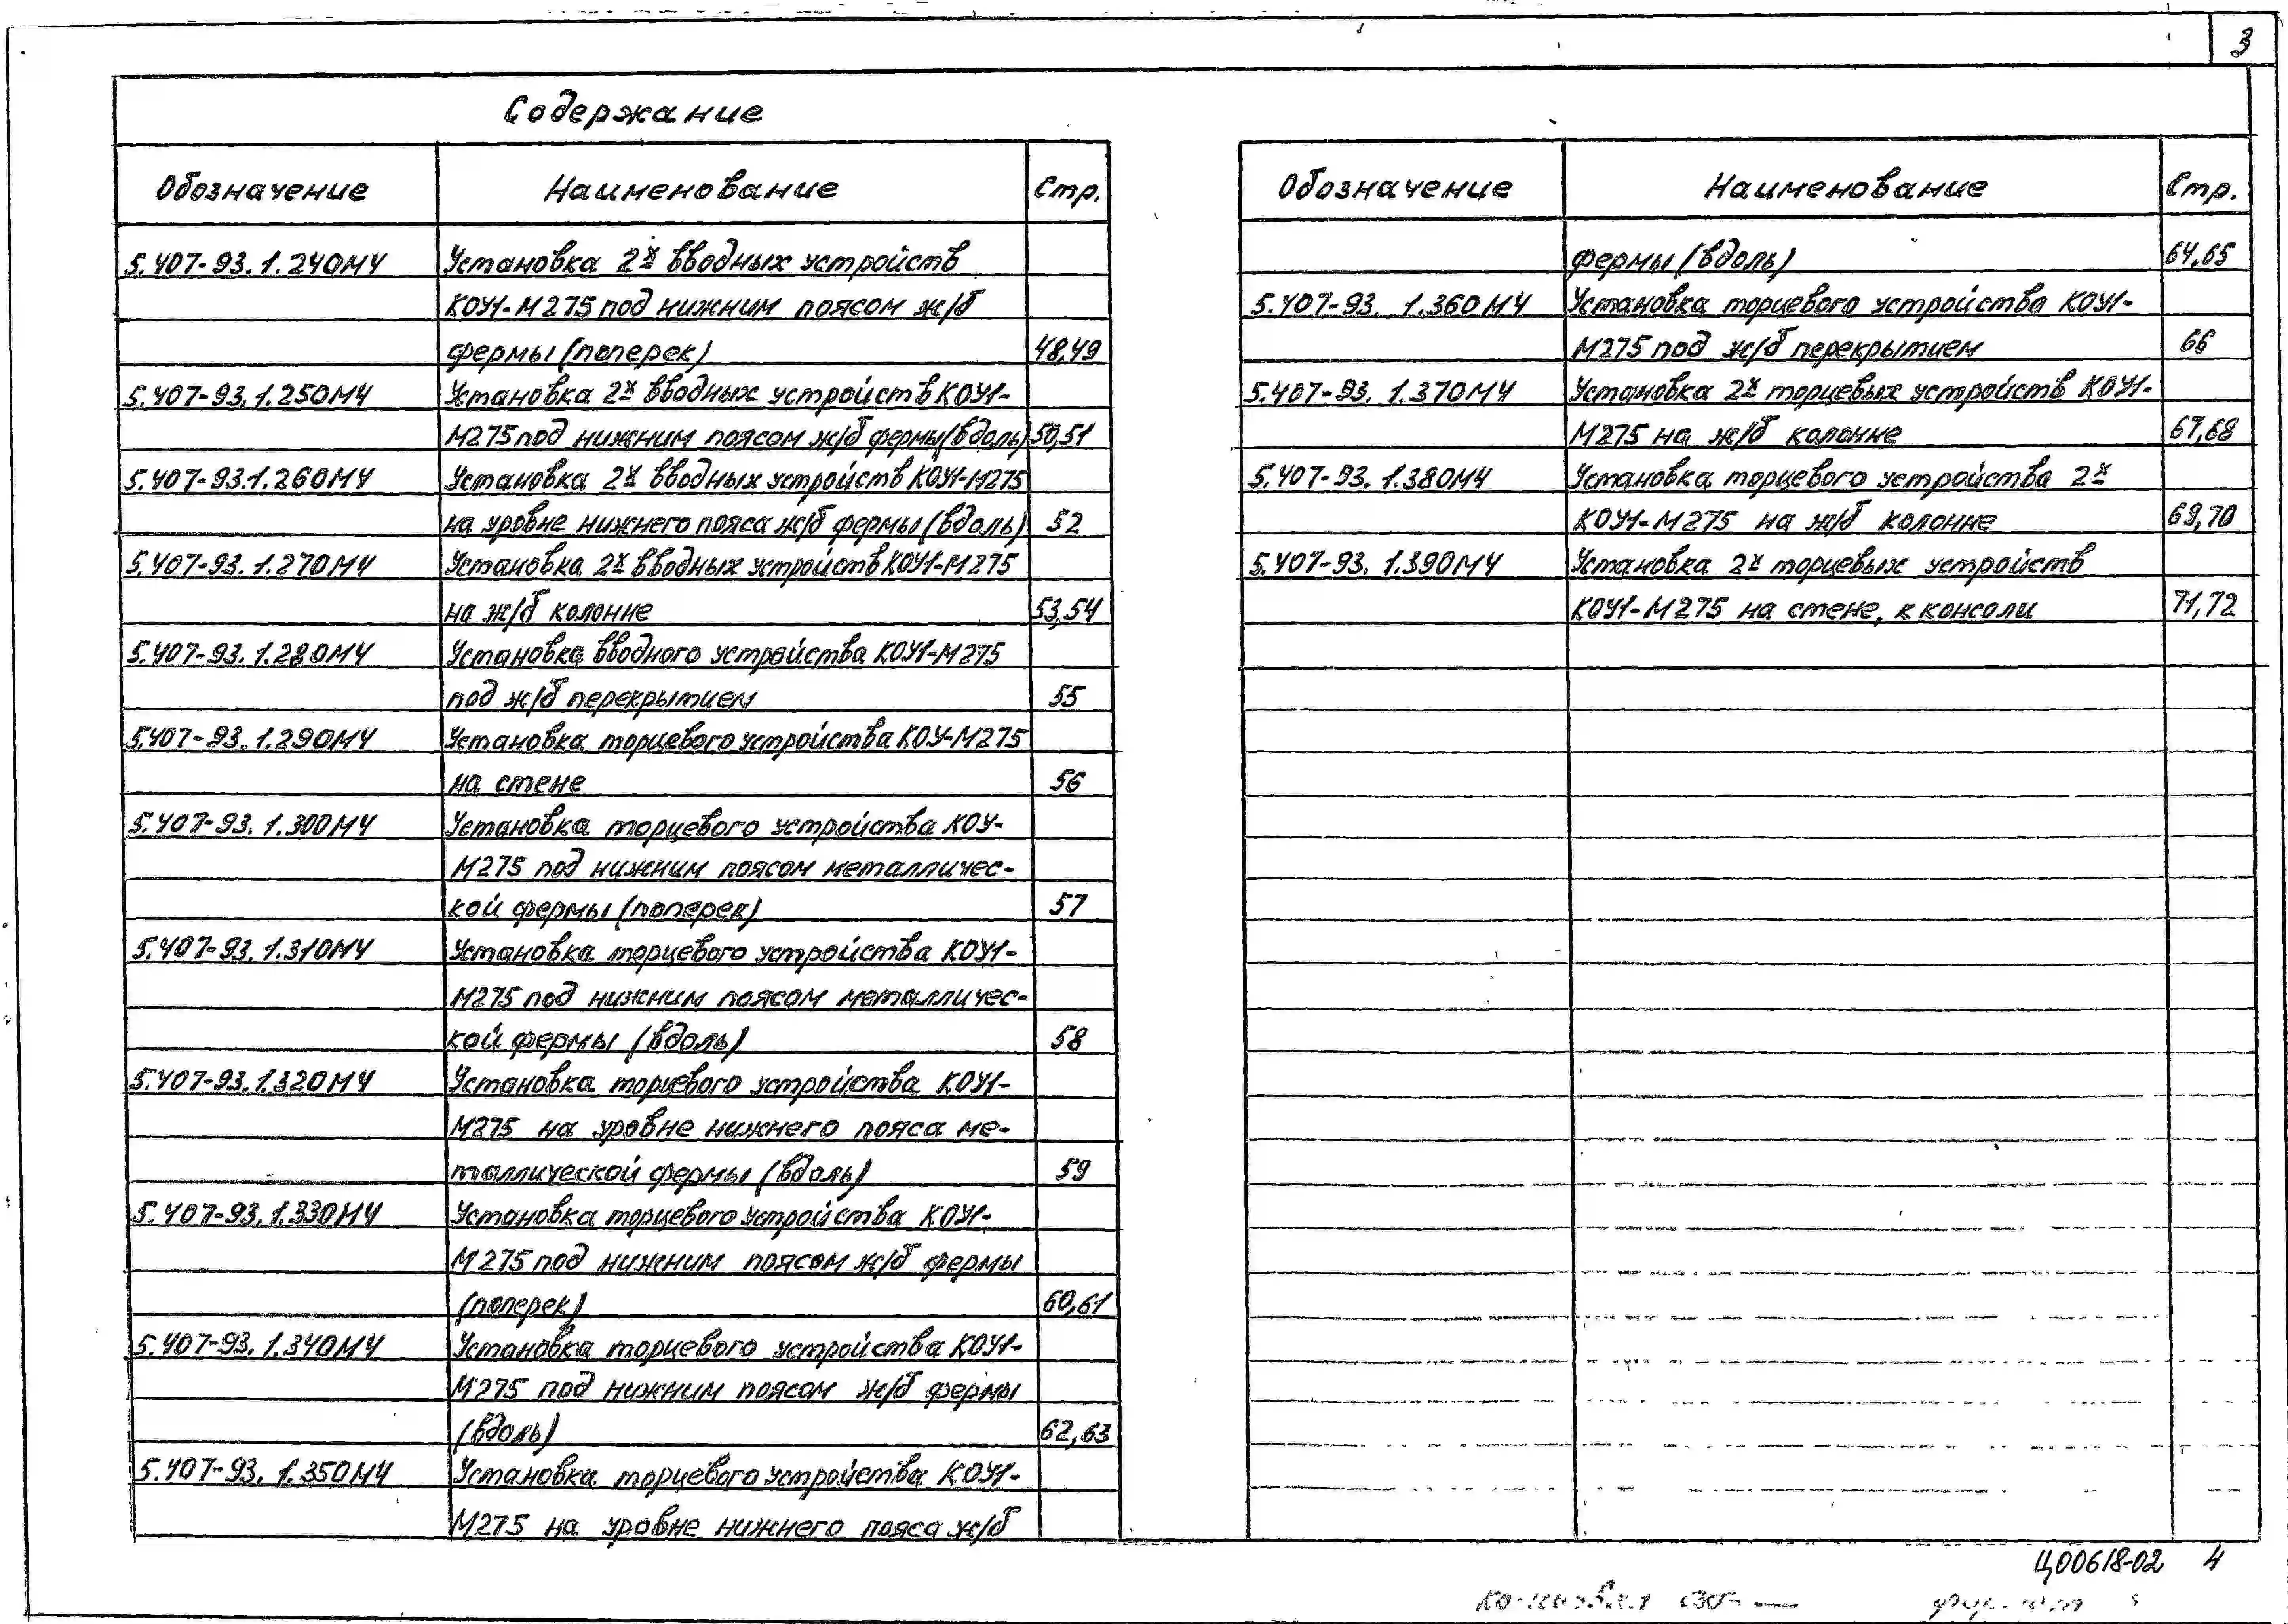 3
Содержание
Обозначение Наименование Стр.
5.407-93.1.240МЧ Установка 2х вводных устройств
КОУ1-М275 под нижним поясом ж/б
фермы (поперек) 48,49
5.407-93.1.250МЧ Установка 2х вводных устройств КОУ1-
М275 под нижним поясом ж/б фермы (вдоль) 50,51
5.407-93.1.260МЧ Установка 2х вводных устройств КОУ1-М275
на уровне нижнего пояса ж/б фермы (вдоль) 52
5.407-93.1.270МЧ Установка 2х вводных устройств КОУ1-М275
на ж/б колонне 53,54
5.407-93.1.280МЧ Установка вводного устройства КОУ1-М275
под ж/б перекрытием 55
5.407-93.1.290МЧ Установка торцевого устройства КОУ-М275
на стене 56
5.407-93.1.300МЧ Установка торцевого устройства КОУ-
М275 под нижним поясом металличес-
кой фермы (поперек) 57
5.407-93.1.310МЧ Установка торцевого устройства КОУ1-
М275 под нижним поясом металличес-
кой фермы (вдоль) 58
5.407-93.1.320МЧ Установка торцевого устройства КОУ1-
М275 на уровне нижнего пояса ме-
таллической фермы (вдоль) 59
5.407-93.1.330МЧ Установка торцевого устройства КОУ1-
М275 под нижним поясом ж/б фермы
(поперек) 60,61
5.407-93.1.340МЧ Установка торцевого устройства КОУ1-
М275 под нижним поясом ж/б фермы
(вдоль) 62,63
5.407-93.1.350МЧ Установка торцевого устройства КОУ1-
М275 на уровне нижнего пояса ж/б
Обозначение Наименование Стр.
фермы (вдоль) 64,65
5.407-93.1.360МЧ Установка торцевого устройства КОУ1-
М275 под ж/б перекрытием 66
5.407-93.1.370МЧ Установка 2х торцевых устройств КОУ1-
М275 на ж/б колонне 67,68
5.407-93.1.380МЧ Установка торцевого устройства 2х
КОУ1-М275 на ж/б колонне 69,70
5.407-93.1.390МЧ Установка 2х торцевых устройств
КОУ1-М275 на стене, к консоли 71,72
Ц00618-02 4